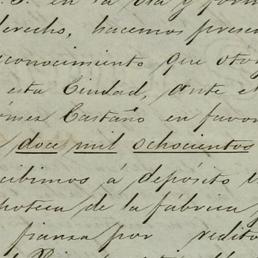 en la
derecho, hacemos
conocimiento que
esta Ciudad, ante
Castaño en favor
doce mil ochocientos
cibimos á depósito
poteca de la fábrica
fianza por redito